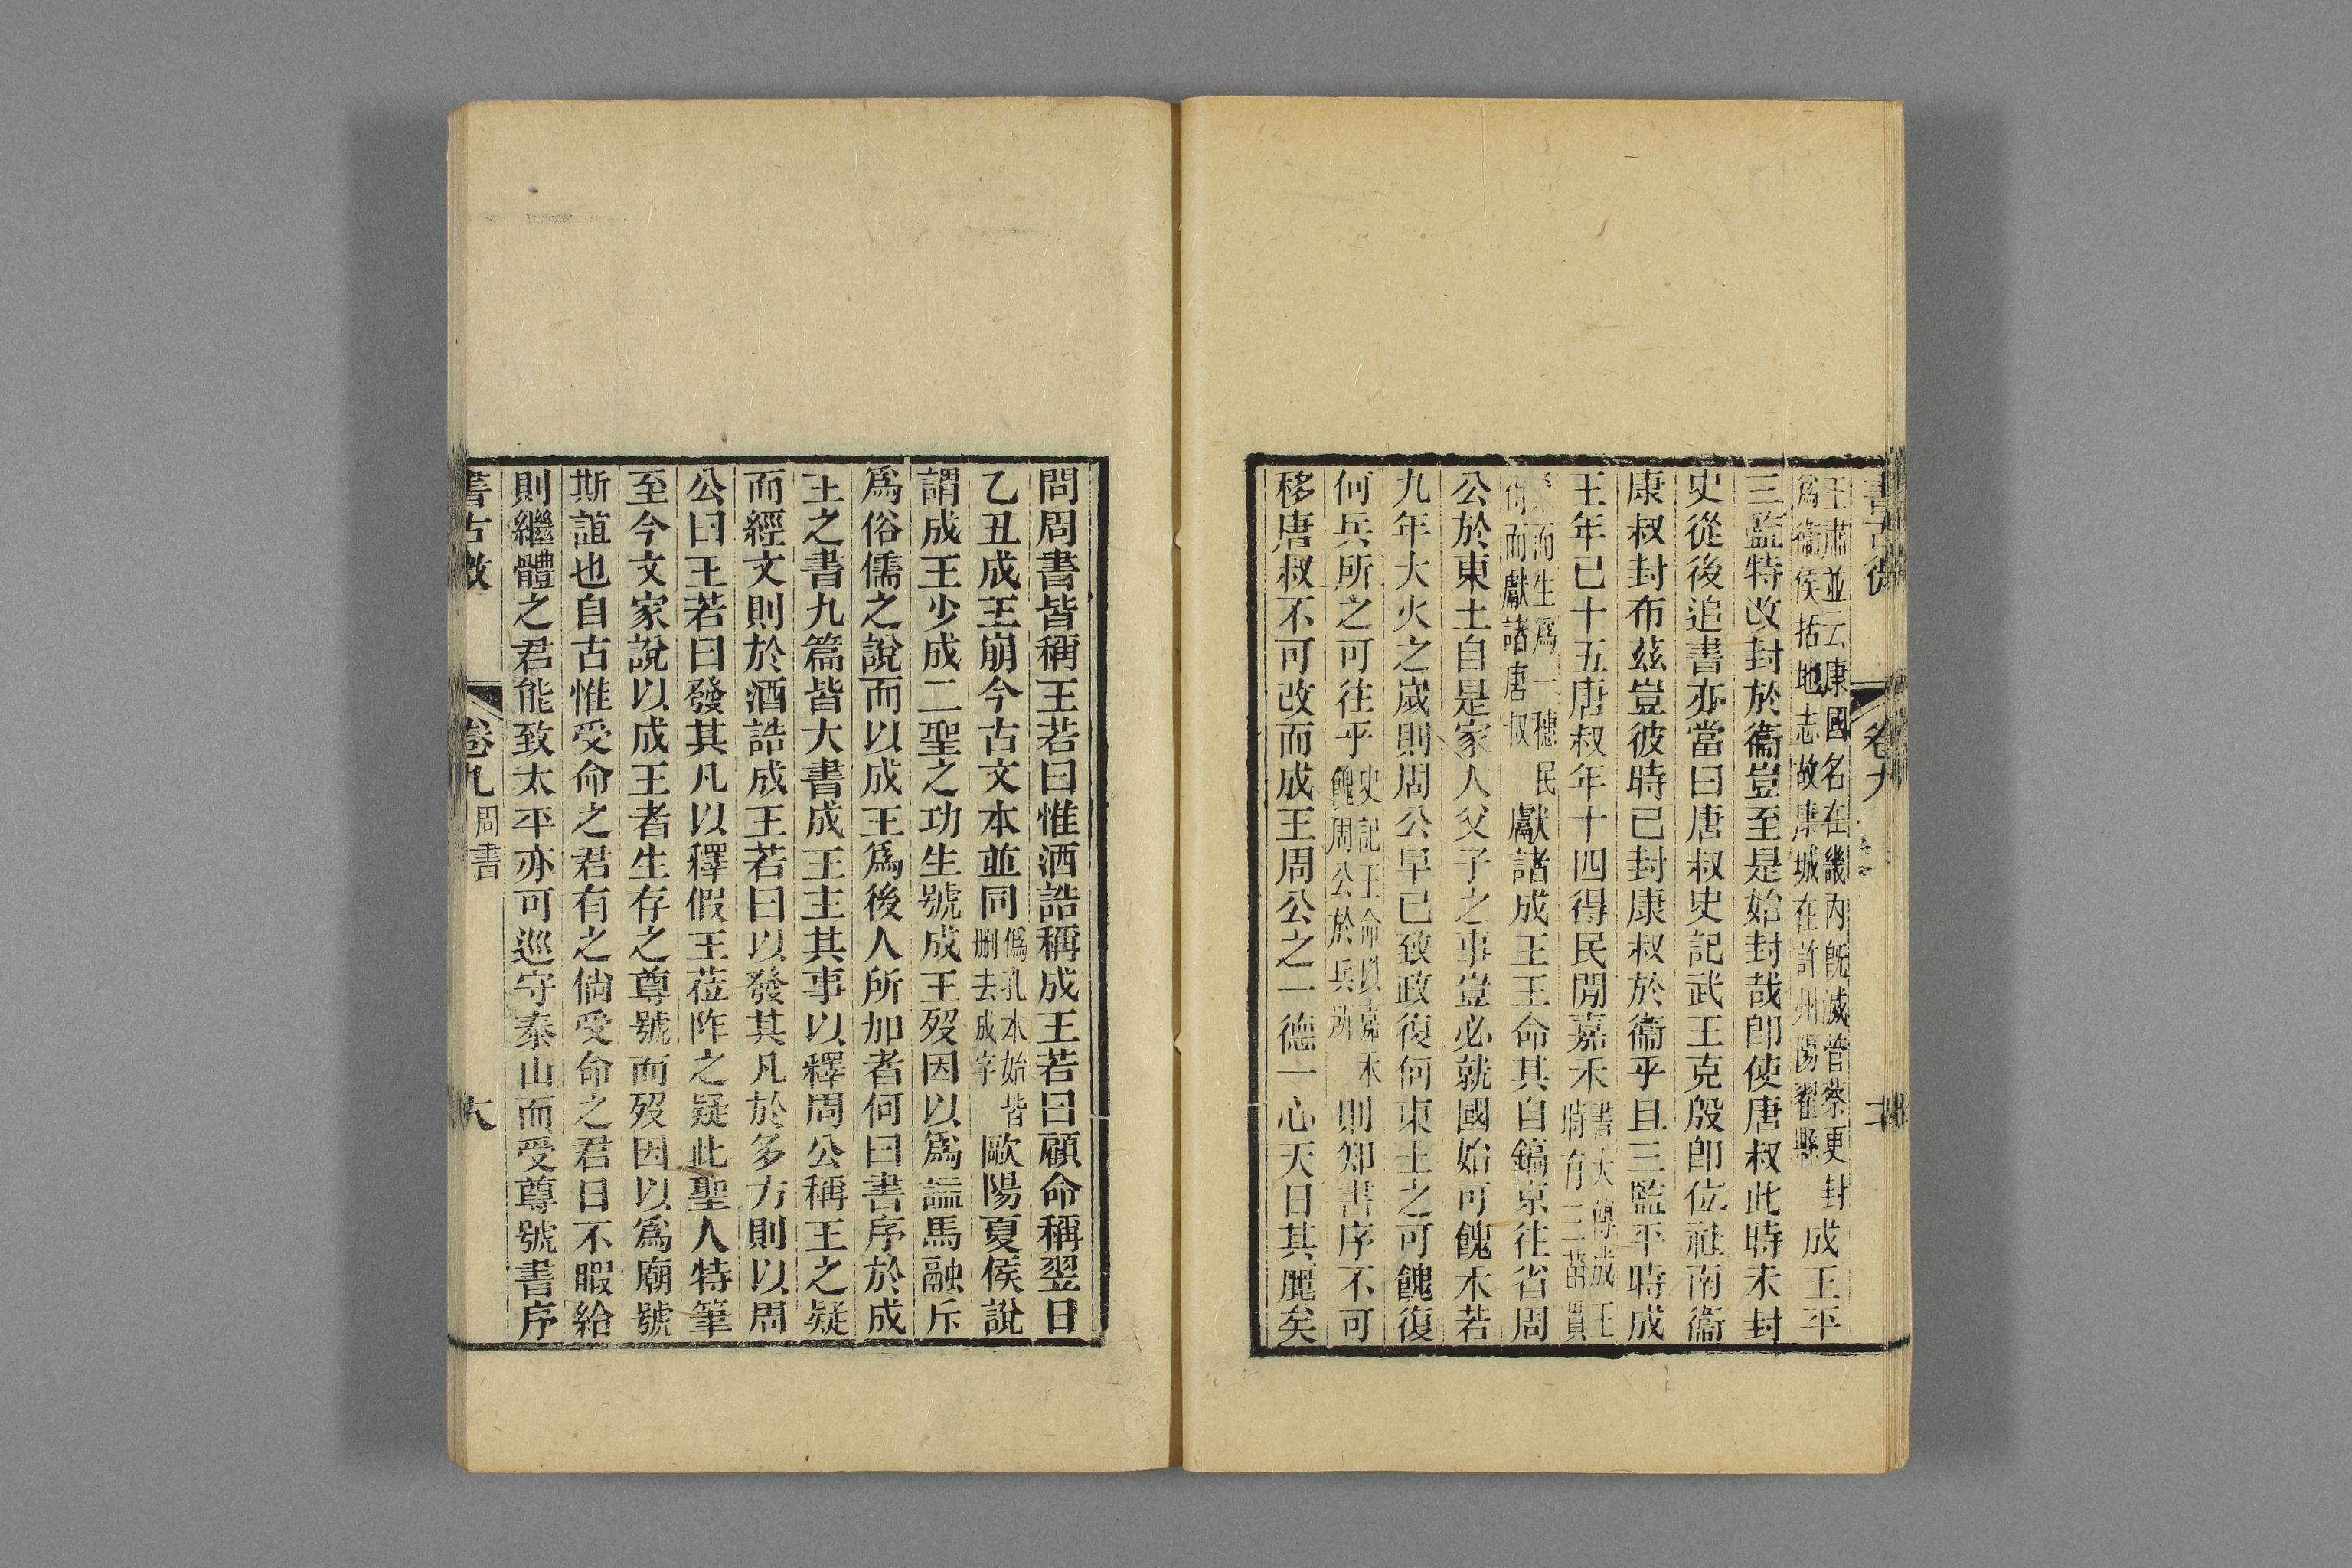 書古微
卷九
王肅並云康國名在畿內既滅管蔡更封
爲衞侯括地志故康城在許州陽翟縣
成王平
三監特改封於衞豈至是始封哉卽使唐叔此時未封
史從後追書亦當曰唐叔史記武王克殷卽位社南衞
康叔封布茲豈彼時已封康叔於衞乎且三監平時成
王年已十五唐叔年十四得民閒嘉禾
書大傳成王
時有三苗貫
桑而生爲一穗民
得而獻諸唐叔
獻諸成王王命其自鎬京往省周
公於東土自是家人父子之事豈必就國始可餽禾若
九年大火之歲則周公早已致政復何東土之可餽復
何兵所之可往乎
史記王命以嘉禾
餽周公於兵所
則知書序不可
移唐叔不可改而成王周公之一德一心天日其麗矣
問周書皆稱王若曰惟酒誥稱成王若曰顧命稱翌日
乙丑成王崩今古文本並同
僞孔本始皆
刪去成字
歐陽夏侯說
謂成王少成二聖之功生號成王歿因以爲謚馬融斥
爲俗儒之說而以成王爲後人所加者何曰書序於成
王之書九篇皆大書成王主其事以釋周公稱王之疑
而經文則於酒誥成王若曰以發其凡於多方則以周
公曰王若曰發其凡以釋假王莅阼之疑此聖人特筆
至今文家說以成王者生存之尊號而歿因以爲廟號
斯誼也自古惟受命之君有之倘受命之君日不暇給
則繼體之君能致太平亦可巡守泰山而受尊號書序
書古微
卷九
周書
大